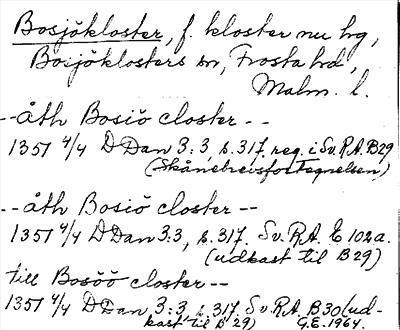 Bosjökloster, f. kloster nu hg,
Bosjöklosters sn, Frosta hd,
Malm. l.
--åth Bosiö closter--
1351 4/4 DDan 3:3, s. 317. reg. i Sv.R.A. B29
(Skånelreisfortegnelsen)
--åth Bosiö closter--
1351 4/4 DDan 3:3, s. 317. Sv.R.A. E 102a.
(udkast til B 29)
till Bosöö closter--
1351 4/4 DDan 3:3, s. 317. Sv.R.A. B30 (ud-
kast til B 29) G.E. 1964.